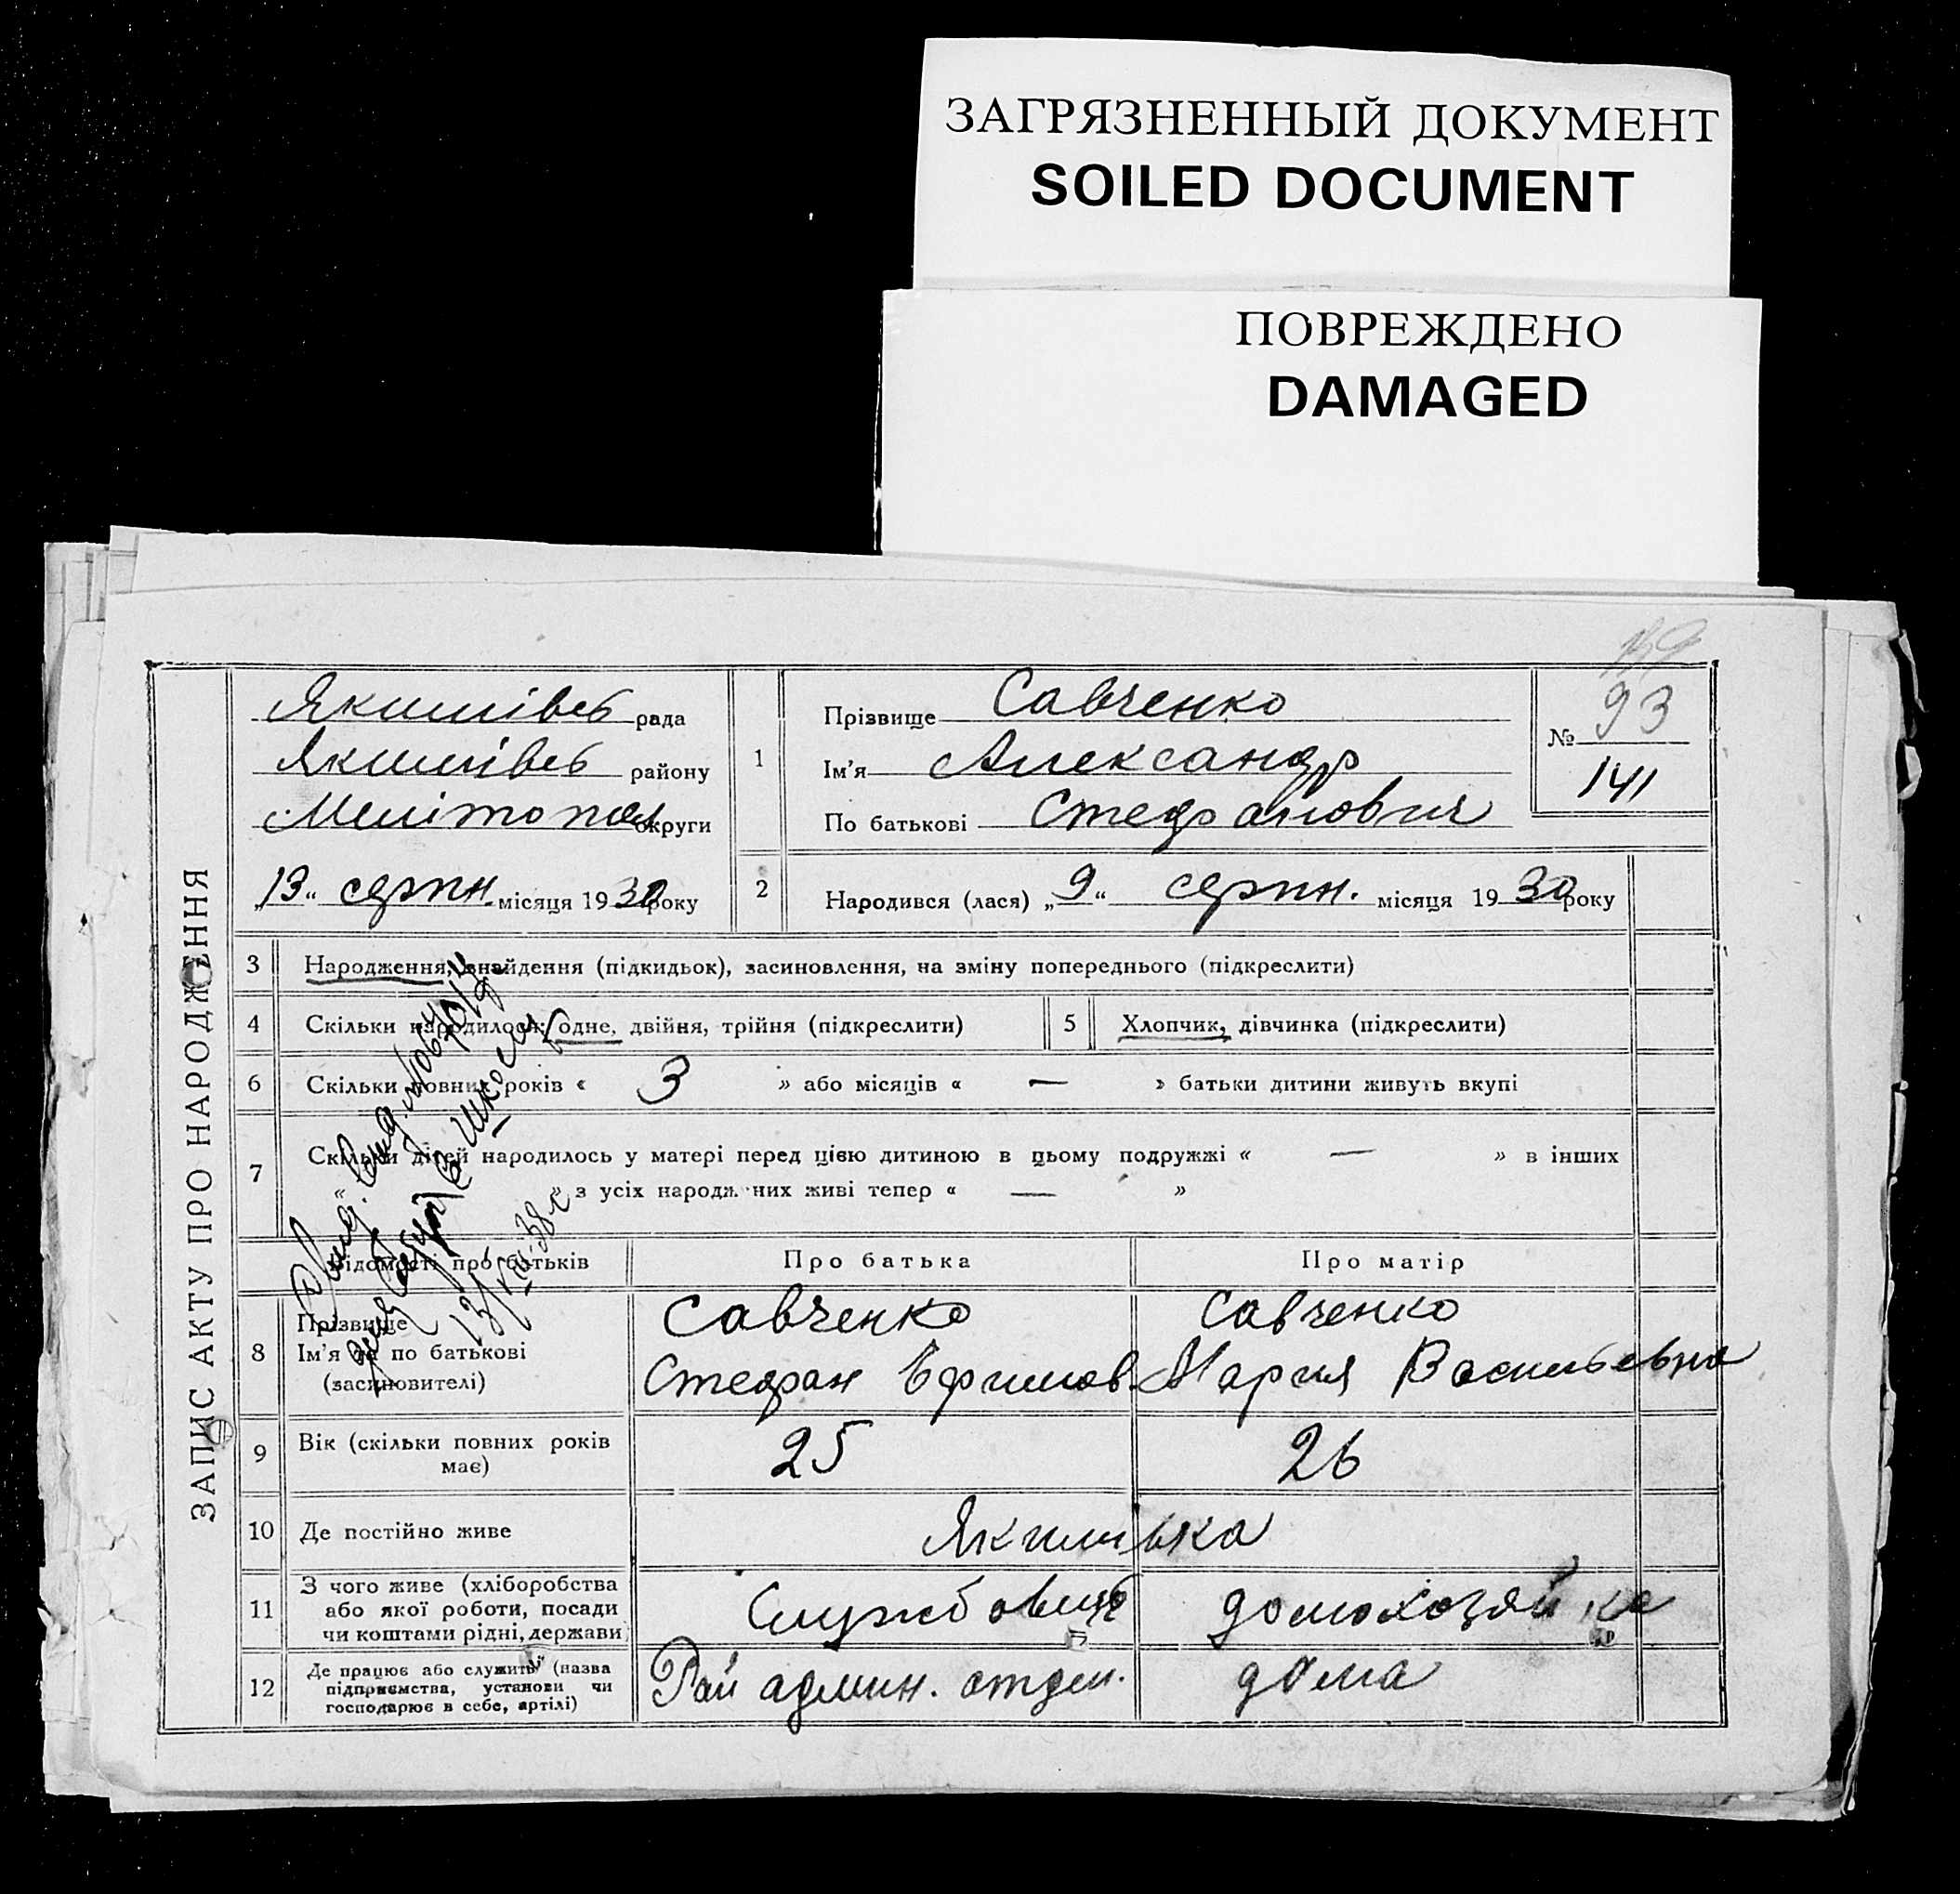 ЗАГРЯЗНЕННЫЙ ДОКУМЕНТ
SOILED DOCUMENT
ПОВРЕЖДЕНО
DAMAGED
ЗАПИС АКТУ ПРО НАРОДЖЕННЯ
Якимівсь рада
Якимівсь району
Мелітопол округи
„13“ серпн. місяця 1930 року
1
Прізвище Савченко
Ім'я Александр
По батькові Стефанович
№ 93
141
2
Народився (лася) „9“ серпн. місяця 1930 року
3 Народження, знайдення (підкидьок), засиновлення, на зміну попереднього (підкреслити)
4 Скільки народилося: одне, двійня, трійня (підкреслити)
5 Хлопчик, дівчинка (підкреслити)
6 Скільки повних років « 3 » або місяців « — » батьки дитини живуть вкупі
7 Скільки дітей народилось у матері перед цією дитиною в цьому подружжі « — » в інших
« » з усіх народжених живі тепер « — »
Відомості про батьків Про батька Про матір
8 Прізвище
Ім'я та по батькові
(засиновителі)
Савченко
Стефан Ефимов.
Савченко
Мария Васильевна
9 Вік (скільки повних років має) 25 26
10 Де постійно живе Якимівка
11 З чого живе (хліборобства
або якої роботи, посади
чи коштами рідні, держави)
Службовець
домохозяйка
12 Де працює або служить (назва
підприємства, установи чи
господарює в себе, артілі)
Рай админ. отдел.
дома